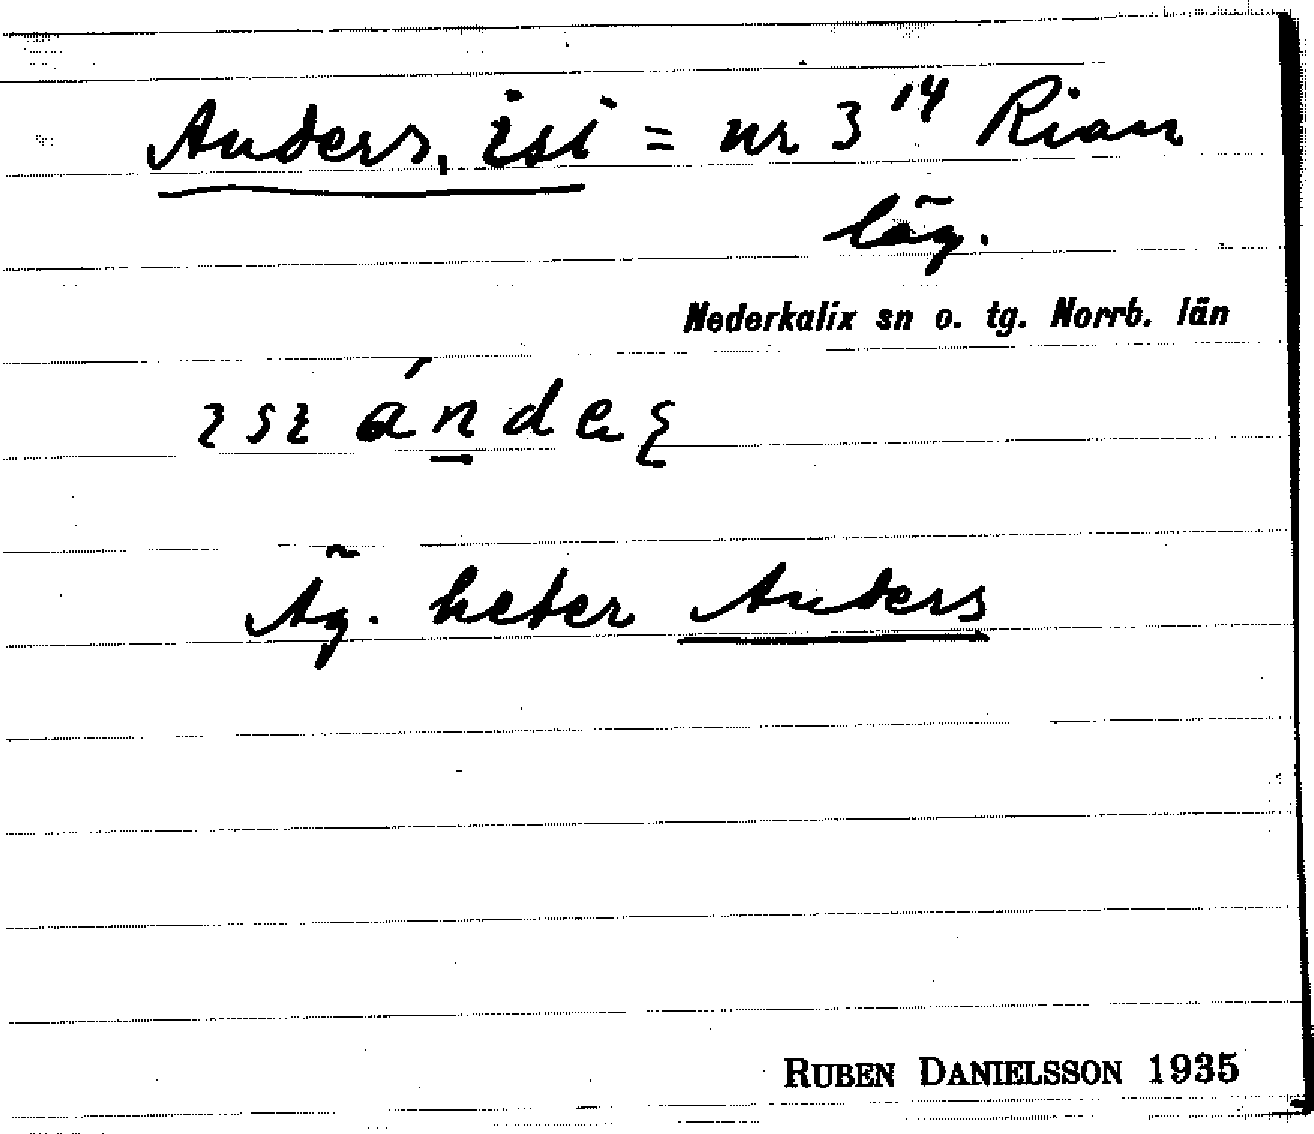 Anders, isi = nr 3¹⁴ Rian
läg.
Nederkalix sn o. tg. Norrb. län
ısı ánder
Äg. heter Anders
RUBEN DANIELSSON 1935